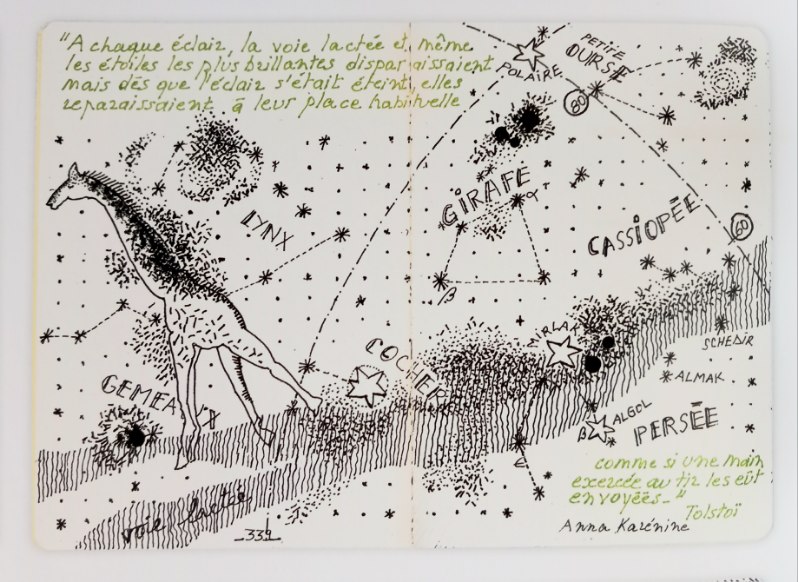 "A chaque éclair, la voie lactée et même
les étoiles les plus brillantes disparaissaient
mais dès que l'éclair s'était éteint, elles
reparaissaient à leur place habituelle
PETITE
OURSE
POLAIRE
80
GIRAFE
α
LYNX
CASSIOPÉE
60
β
MIRFAK
SCHEDIR
COCHER
ALMAK
GEMEAUX
ALGOL
β
PERSÉE
ε
comme si une main
exercée au tir les eût
envoyées_"
Tolstoï
Anna Karénine
voie lactée
_339_